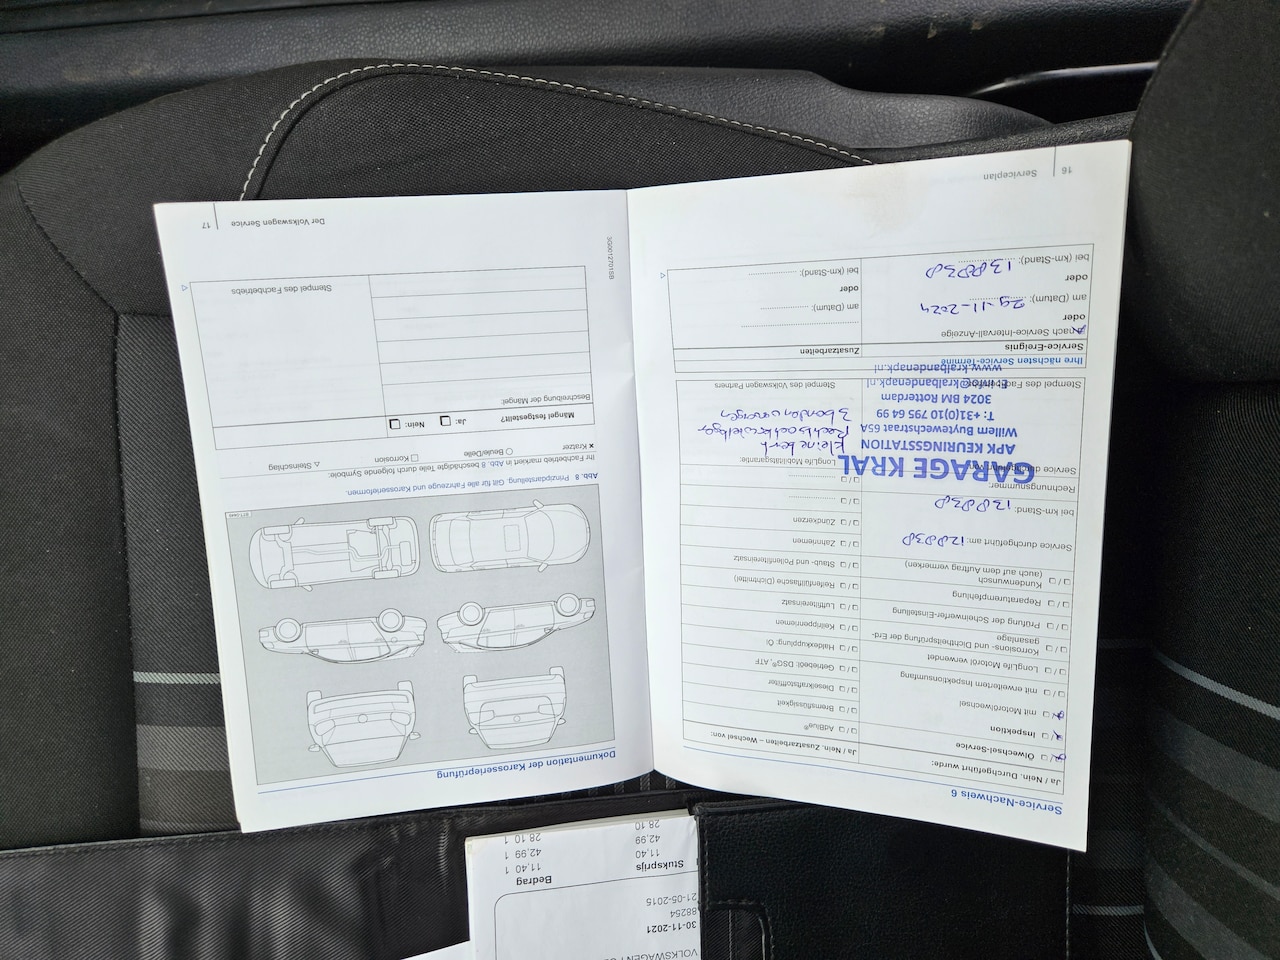 Service-Nachweis 6
Ja / Nein. Durchgeführt wurde:
Ölwechsel-Service
Inspektion
mit Motorölwechsel
mit erweitertem Inspektionsumfang
LongLife Motoröl verwendet
Korrosions- und Dichtheitsprüfung der Erd-
gasanlage
Prüfung der Scheinwerfer-Einstellung
Reparaturempfehlung
Kundenwunsch
(auch auf dem Auftrag vermerken)
Service durchgeführt am:
bei km-Stand: 138838
Rechnungsnummer:
Ja / Nein. Zusatzarbeiten – Wechsel von:
AdBlue®
Bremsflüssigkeit
Dieselkraftstofffilter
Getriebeöl: DSG®, ATF
Haldexkupplung: Öl
Keilrippenriemen
Luftfiltereinsatz
Reifenfüllflasche (Dichtmittel)
Staub- und Pollenfiltereinsatz
Zahnriemen
Zündkerzen
LongLife Mobilitätsgarantie:
GARAGE KRAL
APK KEURINGSSTATION
Willem Buytewechstraat 65A
T: +31(0)10 795 64 99
3024 BM Rotterdam
E info@kralbandenapk.nl
www.kralbandenapk.nl
kleine beurt
3 banden vervangen
Stempel des Volkswagen Partners
Ihre nächsten Service-Termine
Service-Ereignis
Zusatzarbeiten
nach Service-Intervall-Anzeige
oder
am (Datum): 29-11-2024
oder
bei (km-Stand): 138838
am (Datum):
oder
bei (km-Stand):
16
Serviceplan
Dokumentation der Karosserieprüfung
Abb. 8 Prinzipdarstellung. Gilt für alle Fahrzeuge und Karosserieformen.
Ihr Fachbetrieb markiert in Abb. 8 beschädigte Teile durch folgende Symbole:
Kratzer
Beule/Delle
Korrosion
Steinschlag
Mängel festgestellt?
Ja:
Nein:
Beschreibung der Mängel:
Stempel des Fachbetriebs
3G0012701SB
Der Volkswagen Service
17
30-11-2021
88254
21-05-2015
Stuksprijs
Bedrag
11,40
11,40 1
42,99
42,99 1
28,10
28,10 1